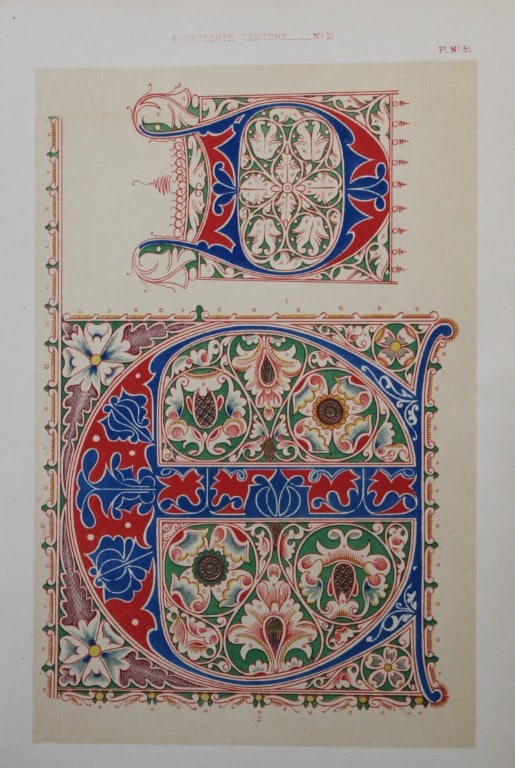 FOURTEENTH CENTURY____Nº 13
Pl. Nº 55
1
2